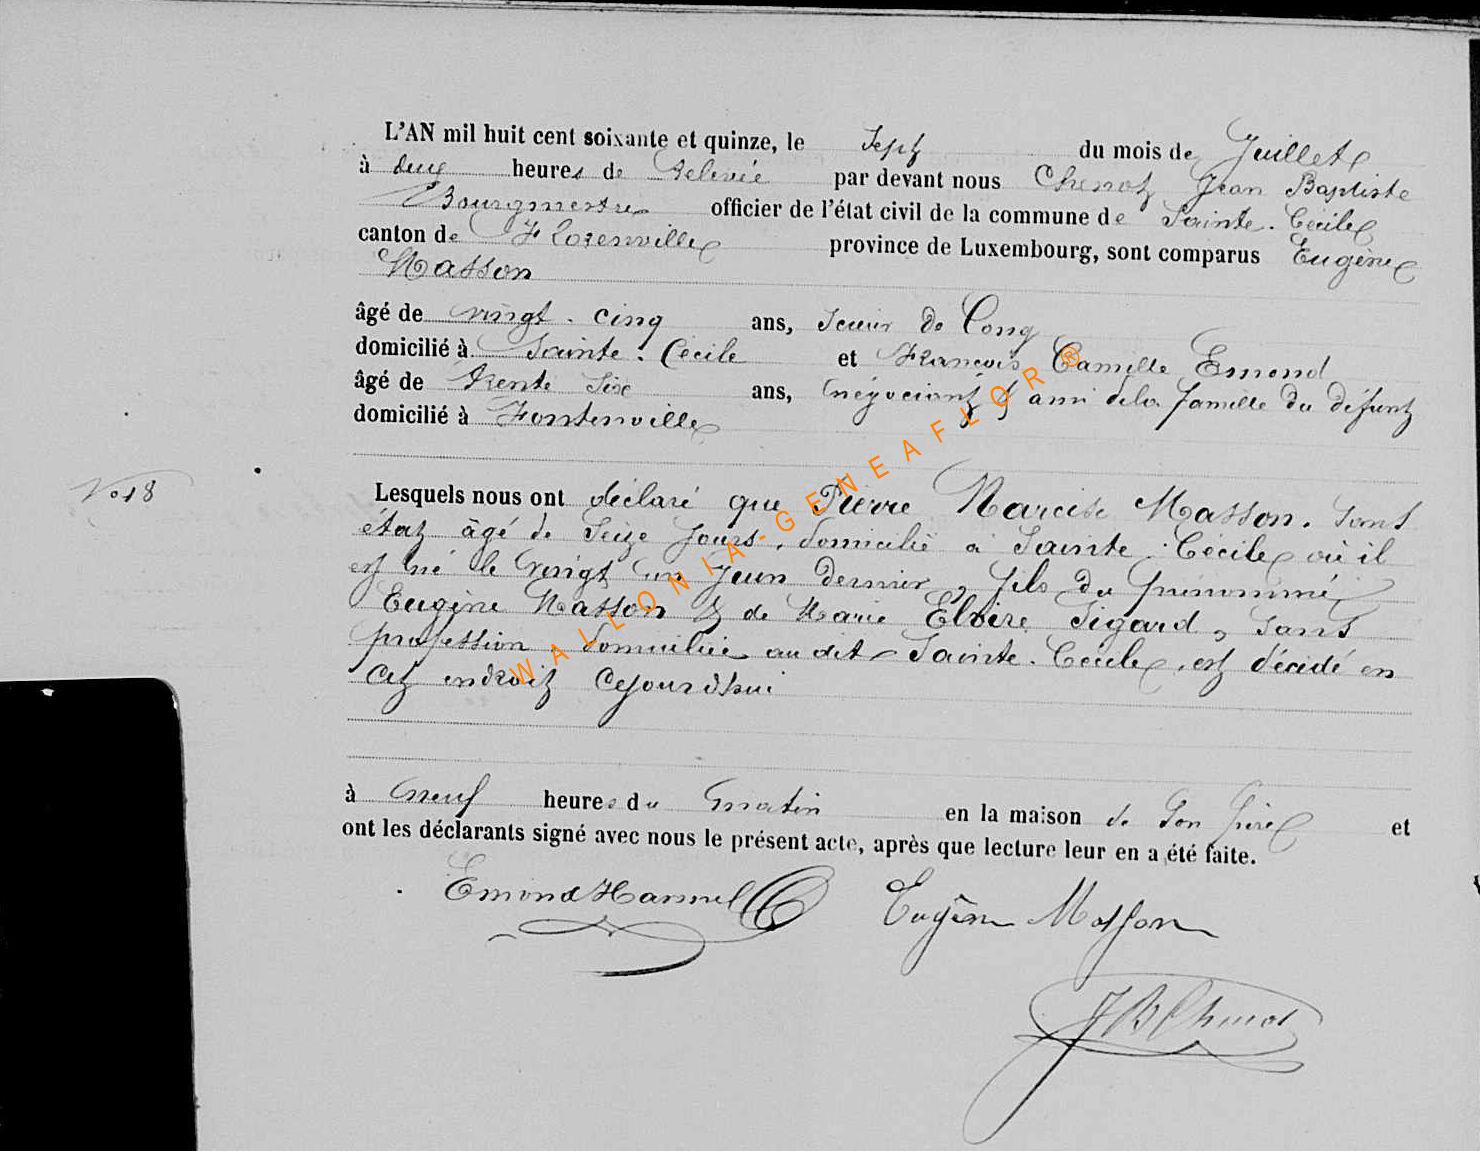 L'AN mil huit cent soixante et quinze, le Sept du mois de Juillet
à deux heures de relevée par devant nous Chenot Jean Baptiste
Bourgmestre officier de l'état civil de la commune de Sainte-Cécile
canton de Florenville province de Luxembourg, sont comparus Eugène
Masson
âgé de vingt-cinq ans, Scieur de Long
domicilié à Sainte-Cécile et François Camille Emond
âgé de trente six ans, négociant & ami de la famille du défunt
domicilié à Fontenoille
No 18
Lesquels nous ont déclaré que Pierre Narcise Masson. Sans
état âgé de Seize Jours, domicilié à Sainte-Cécile où il
est né le vingt un Juin dernier, fils du prénommé
Eugène Masson & de Marie Elvire Sigard, Sans
profession domiciliée audit Sainte-Cécile, est décédé en
cet endroit cejourd'hui
à neuf heures du matin en la maison de Son père et
ont les déclarants signé avec nous le présent acte, après que lecture leur en a été faite.
Emond Eugène Masson
JB Chenot
WALLONIA-GENEAFLOR®